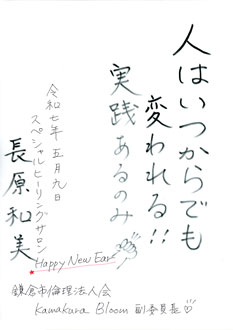 人はいつからでも
変われる!!
実践あるのみ
令和七年 五月九日
スペシャルヒーリングサロン
Happy New Ear
長原和美
鎌倉市倫理法人会
Kamakura Bloom 副委員長